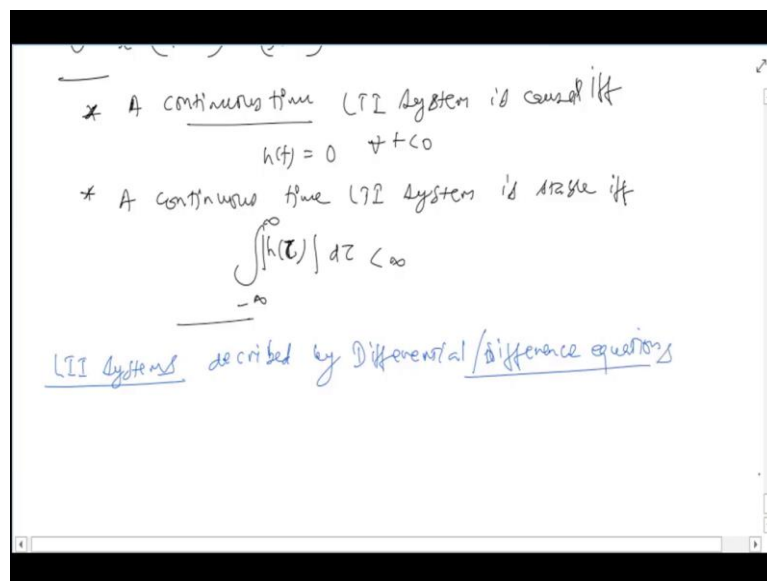 * A continuous time LTI system is causal iff
h(t) = 0 ∀ t<0
* A continuous time LTI system is stable iff
∫_{-∞}^{∞} |h(τ)| dτ < ∞
LTI Systems decribed by Differential/Difference equations